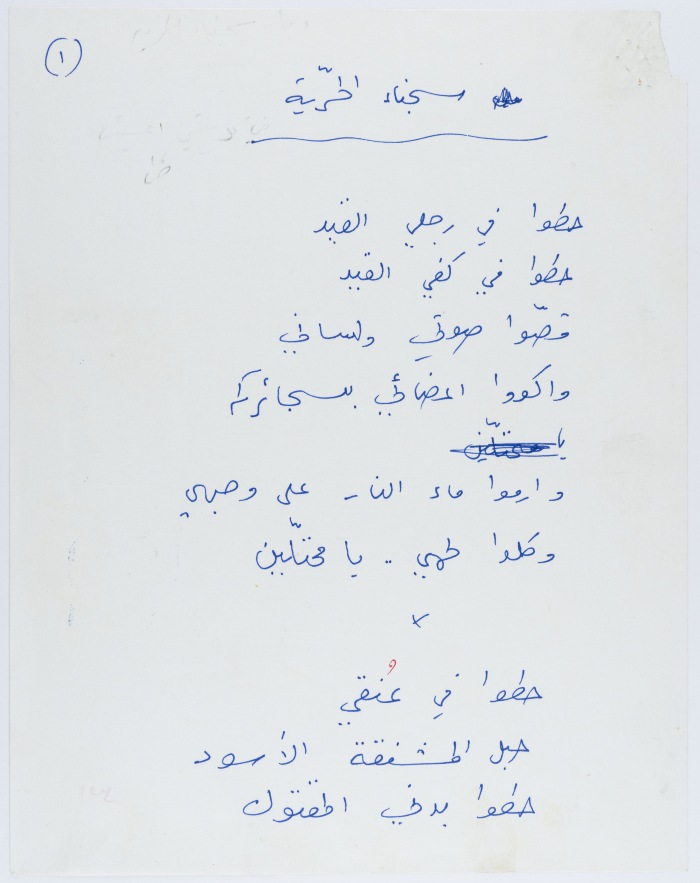 ١
سجناء الحرّية
حطوا في رجلي القيد
حطوا في كفي القيد
قصّوا صوتي ولساني
واكووا اعضائي بسجائركم
يا محتلّين
وارموا ماء النار على وجهي
وكلوا لحمي .. يا محتلّين
×
حطوا في عُنقي
حبل المشنقة الأسود
حطوا بدني المقتول